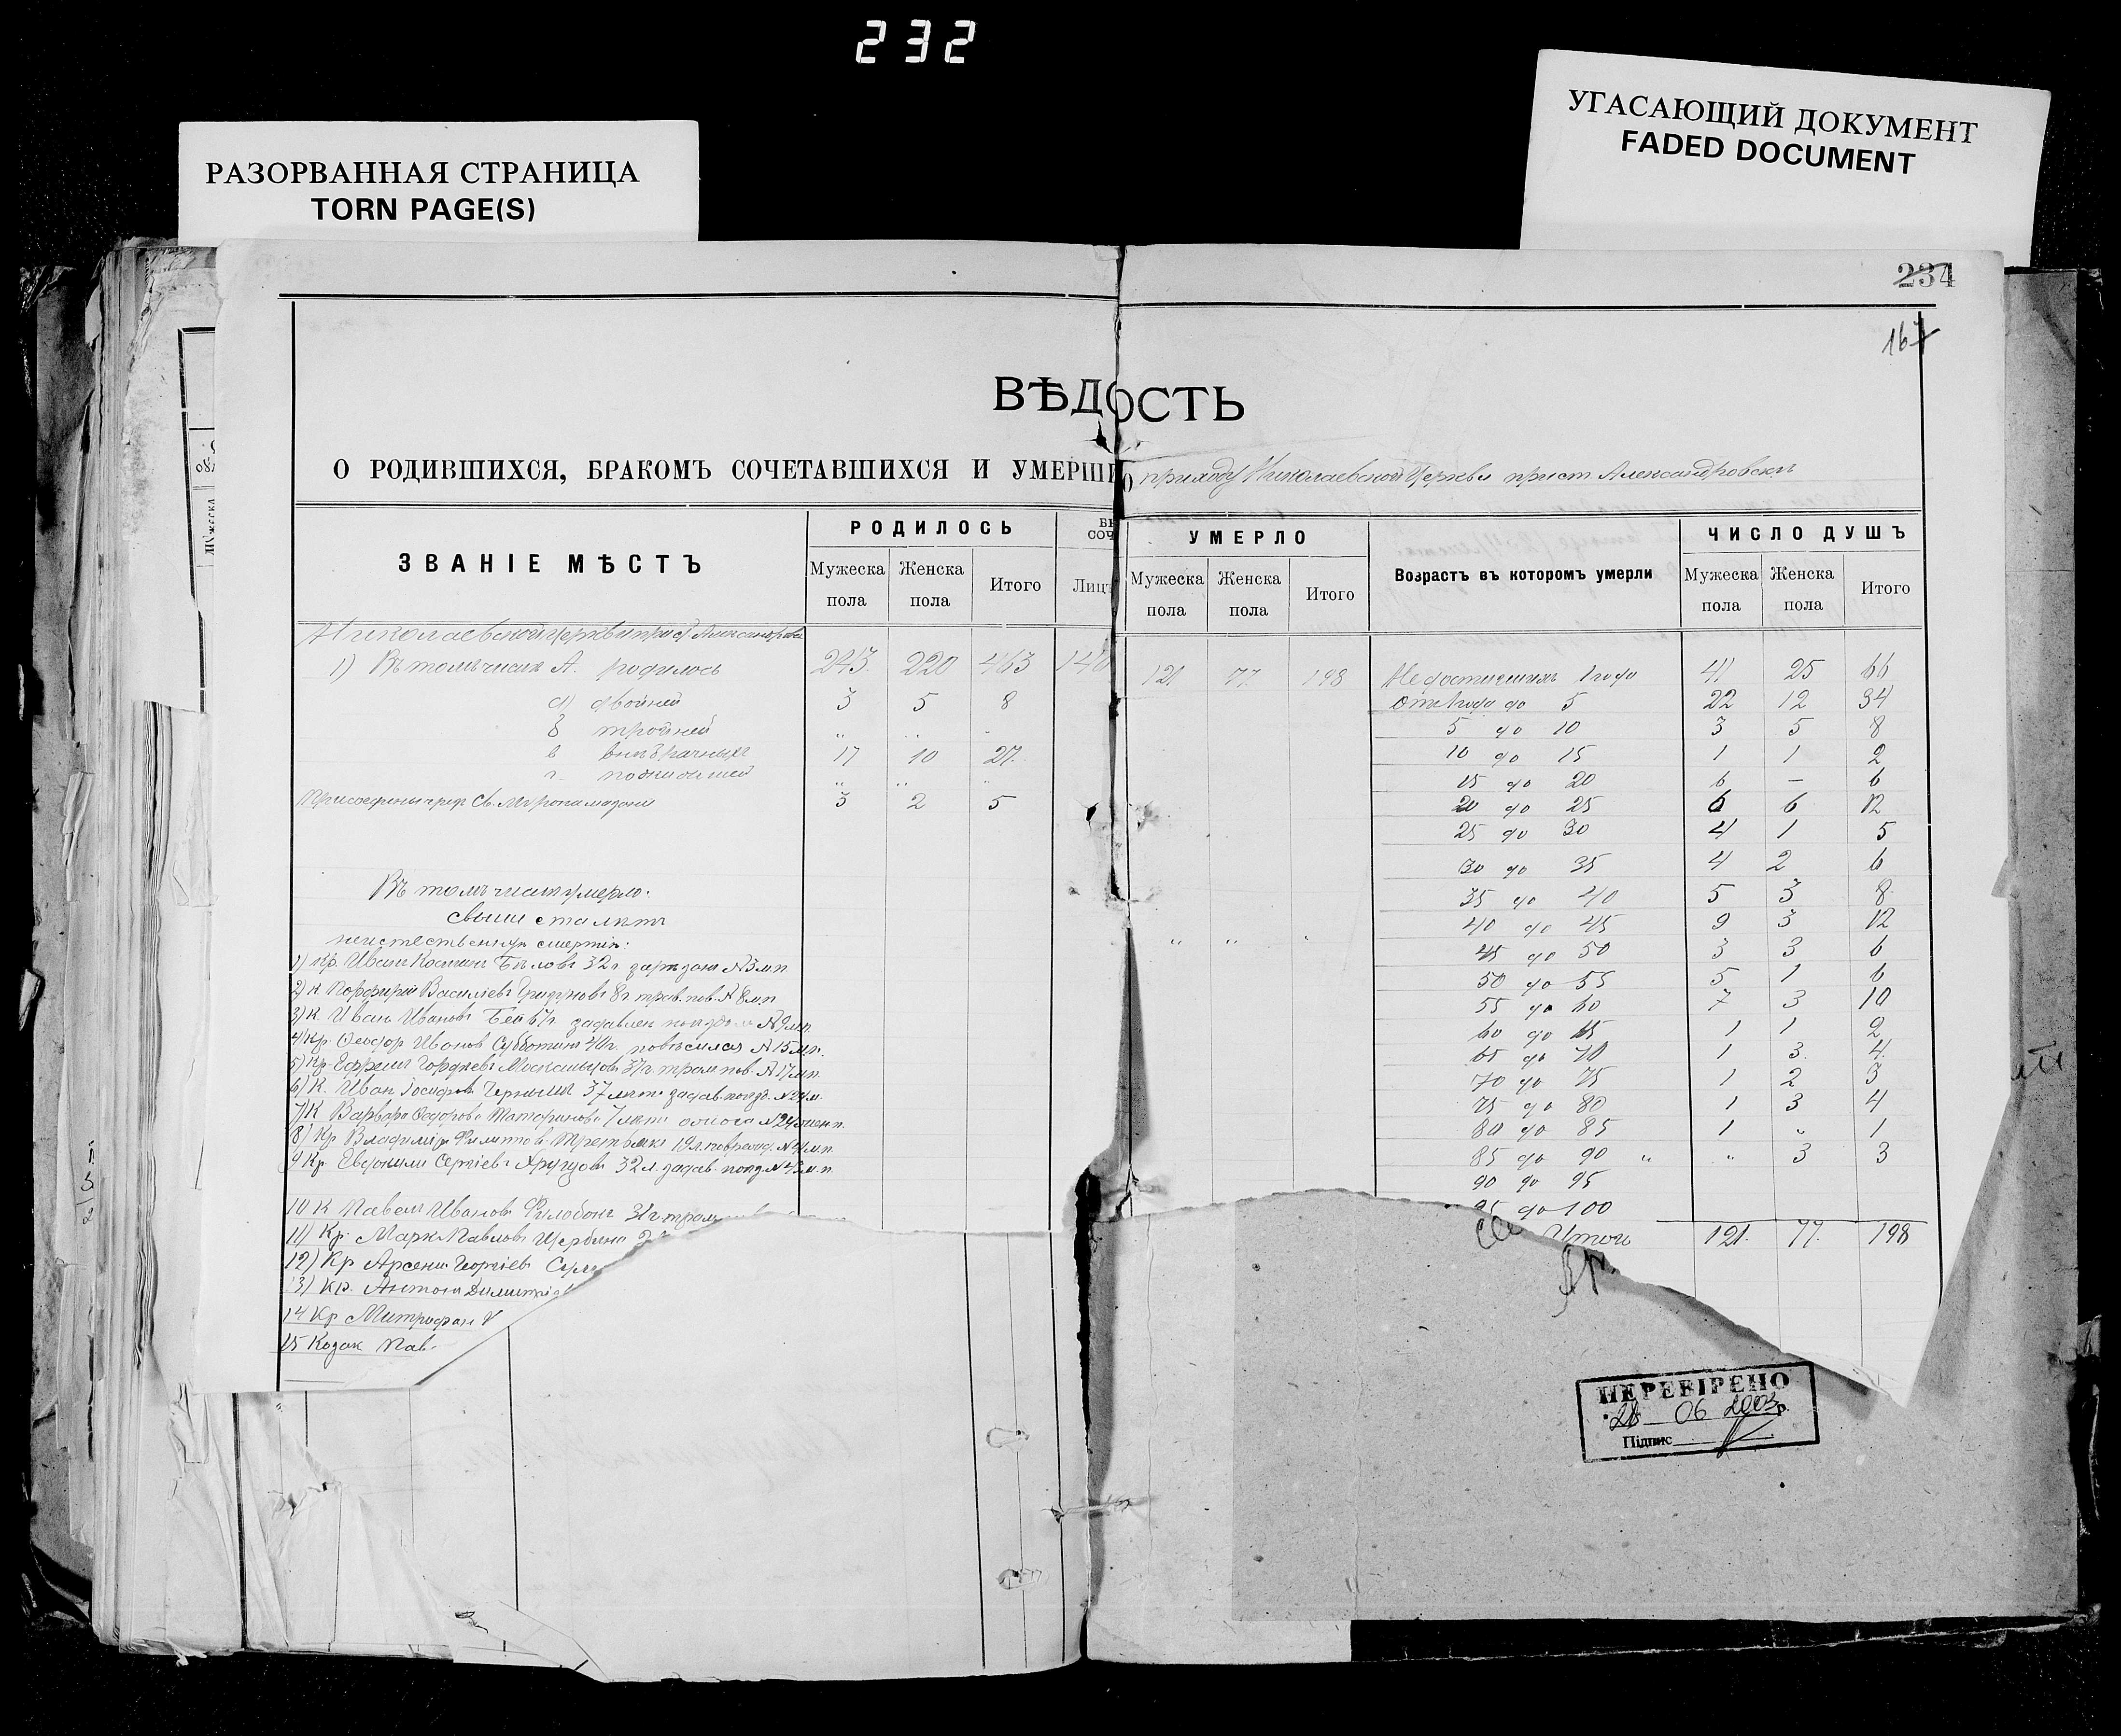 232
РАЗОРВАННАЯ СТРАНИЦА
TORN PAGE(S)
УГАСАЮЩИЙ ДОКУМЕНТ
FADED DOCUMENT
234
167
ВѢДОСТЬ
О РОДИВШИХСЯ, БРАКОМЪ СОЧЕТАВШИХСЯ И УМЕРШИ
О приходу Николаевской Церкви прист. Александровск
ЗВАНІЕ МѢСТЪ
РОДИЛОСЬ
Мужеска пола
Женска пола
Итого
СОЧ
Лицъ
УМЕРЛО
Мужеска пола
Женска пола
Итого
Возрастъ въ которомъ умерли
ЧИСЛО ДУШЪ
Мужеска пола
Женска пола
Итого
Николаевской церкви прист Александровск
1) Въ томъ числѣ А. родилось 243 220 463 148
а) двойней 3 5 8
б тройней " " "
в внѣбрачныхъ 17 10 27
г " " "
Присоединено чрез Св. Миропомазание 3 2 5
Въ томъ числѣ умерло.
свыше ста лѣтъ
неестественную смертію: " " "
1) Кр. Иванъ Бѣловъ 32 г № 3 м.п.
2) К Порфирій Васильевъ 8 г трав. пов. № 8 м.п
3) К Иванъ Ивановъ задавлен поѣздом № 9 м.п.
4) Кр. Ѳеодор Иванов Субботинъ 40 г. повѣсился № 15 м.п.
5) Кр. Ефремъ Гордѣевъ 37 г трам. пов. № 17 м.п.
6) К. Иван Іосифов Черныш 37 лѣт задав. поѣзд. № 24 м.
7) К Варвара Ѳедорова 7 лѣт ожога № 24 женп.
8) Кр Владимір Филиппов Третьяк 19 л. № 41 м.п.
9 Кр. Евфимий Сергіевъ 32 л. задав. поѣзд № 43 м.п.
10 К Павелъ Иванов 31 г трам
11) Кр. Марк Павловъ Щербина
12) Кр Арсений Георгіевъ
13) Кр. Антонъ Димитрі
14 Кр Митрофан
15 Козак Пав
121 77 198
Недостигшихъ 1 года 41 25 66
От 1 года до 5 22 12 34
5 до 10 3 5 8
10 до 15 1 1 2
15 до 20 6 — 6
20 до 25 6 6 12
25 до 30 4 1 5
30 до 35 4 2 6
35 до 40 5 3 8
40 до 45 9 3 12
45 до 50 3 3 6
50 до 55 5 1 6
55 до 60 7 3 10
60 до 65 1 1 2
65 до 70 1 3 4
70 до 75 1 2 3
75 до 80 1 3 4
80 до 85 1 " 1
85 до 90 " " 3 3
90 до 95
95 до 100
Итого 121 77 198
ПЕРЕВІРЕНО
28 06 2003 р.
Підпис